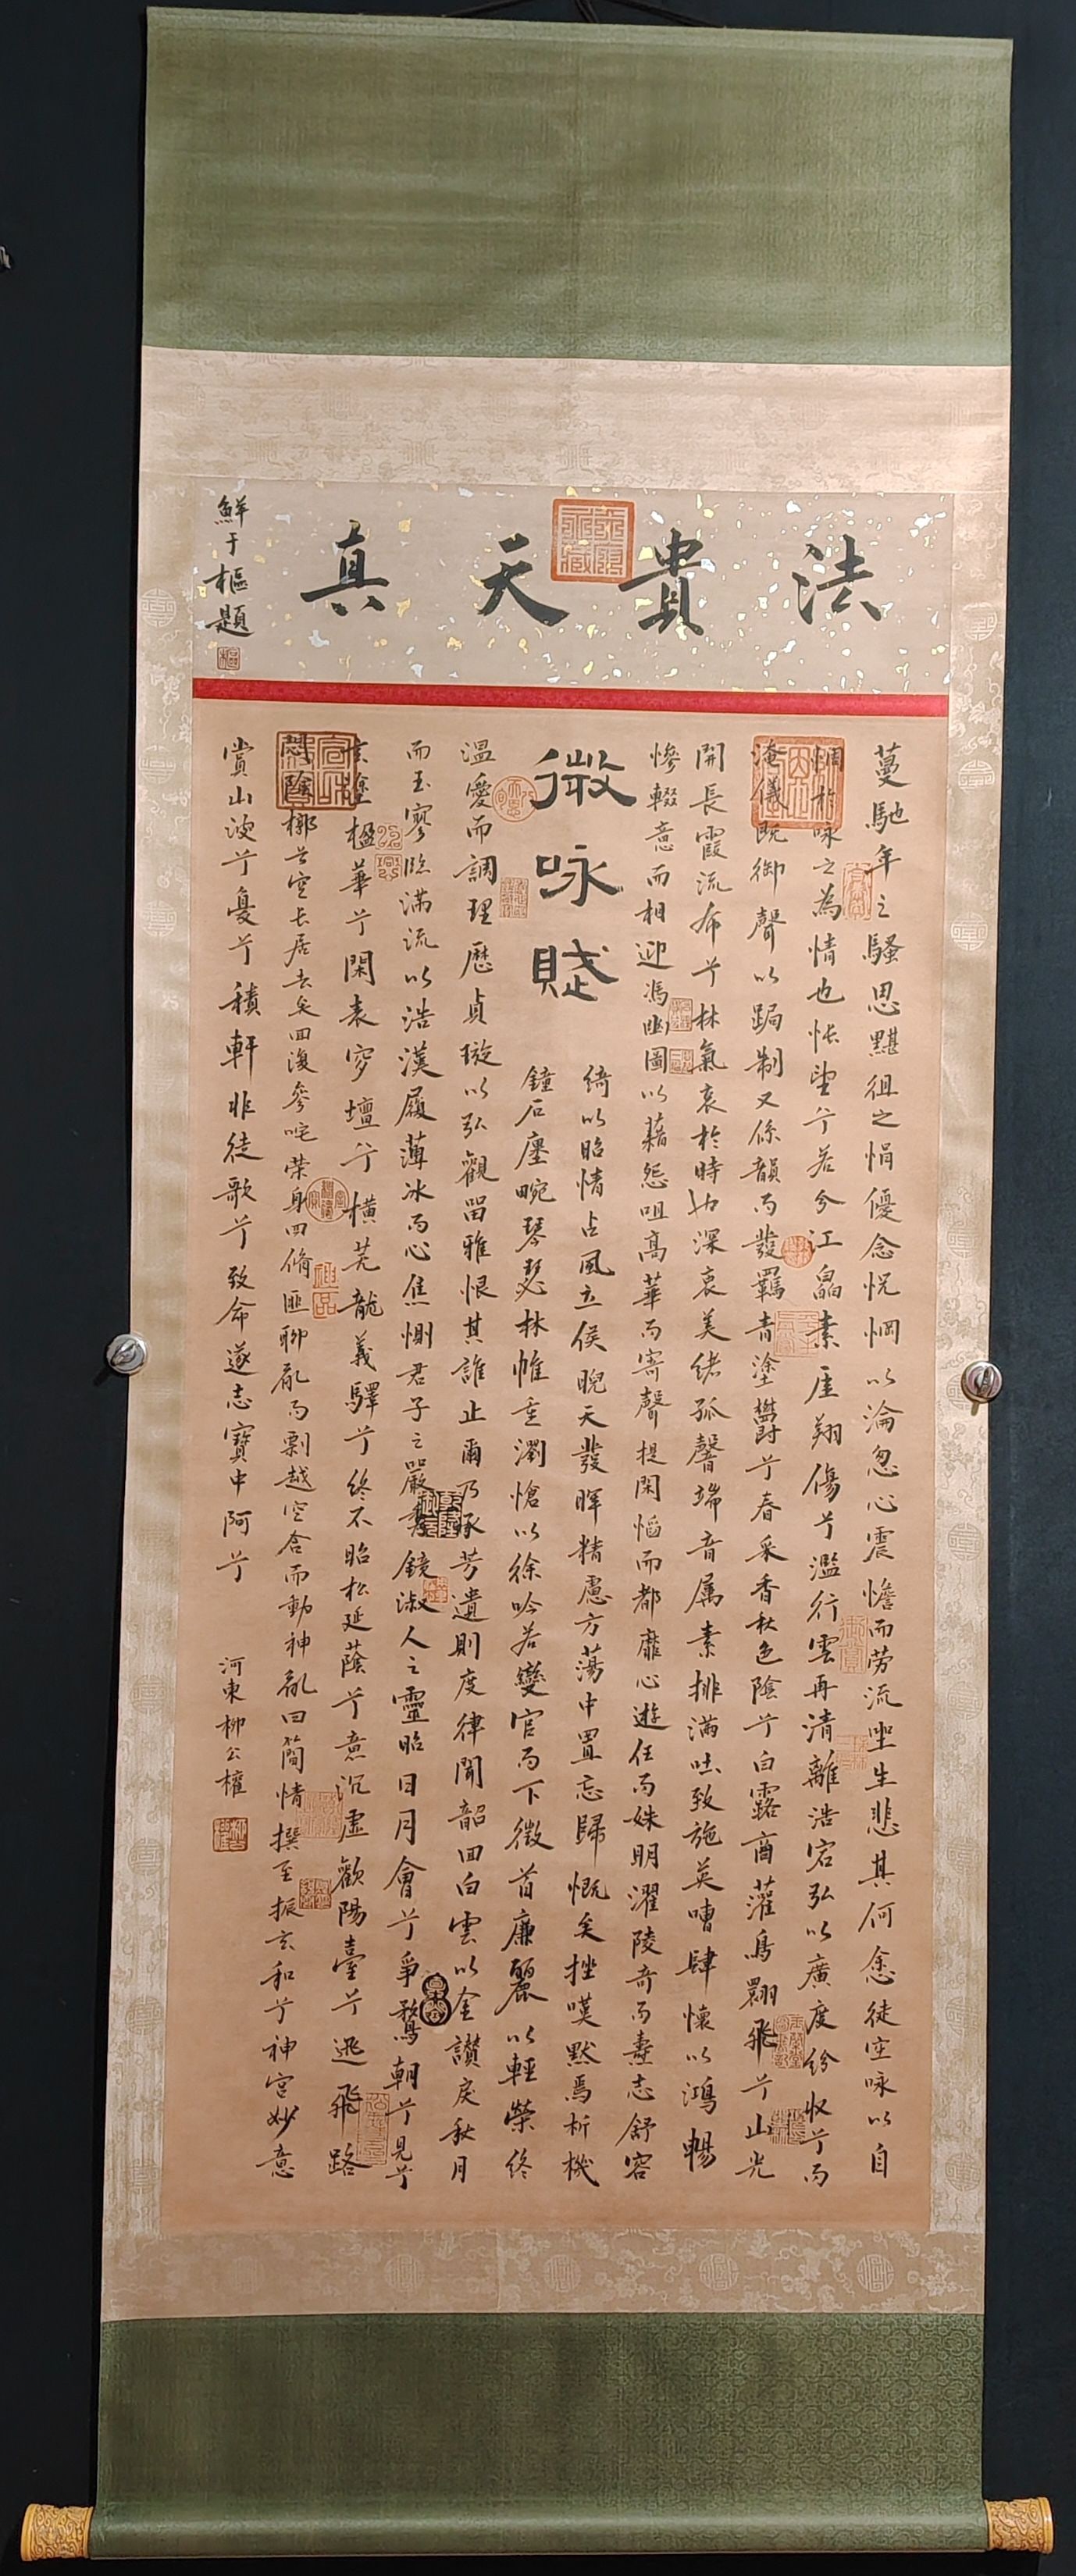 法貴天真
鮮于樞題
蔓馳年之騷思黮徂之悁優念怳惘以淪忽心震憺而勞流坐生悲其何念徒空咏以自
惆於咏之為情也悵望兮若分江皛素庢翔傷兮濫行雲再清離浩宕弘以廣度紛收兮而
淹儀既御聲以跼制又係韻而發羈青塗鬱兮春采香秋色陰兮白露商灌鳥翾飛兮山光
開長霞流布兮林氣哀於時也深衷美緒孤馨端音属素排滿吐致施英嘈肆懷以鴻暢
慘輟意而相迎馮幽圖以藉怨咀高華而寄聲提閑愔而都靡心遊任而姝明濯陵奇而燾志舒容
綺以昭情占風立候睨天發暉精慮方蕩中置忘歸慨矣挫嘆默焉析機
微咏賦
鐘石廛畹琴瑟林帷重瀏愴以徐吟若變官而下徵首廉麗以輕榮終
温愛而調理歷貞璇以弘觀留雅恨其誰止爾乃承芳遺則度律聞韶回白雲以金讃戾秋月
而玉寥臨滿流以浩漢履薄冰而心焦惻君子之嚴秀鏡淑人之靈昭日月會兮爭騖朝兮見兮
玄塗楹華兮閑表穸壇兮橫芜龍義驛兮終不昭松延蔭兮意沉虛歡陽臺兮迅飛路
蔭椰兮空长居去矣回復參咤荣身四脩匪聊亂而剽越空含而動神亂曰簡情撰至振玄和兮神宮妙意
賞山波兮憂兮積軒非徒歌兮致命遂志寶中阿兮
河東柳公權